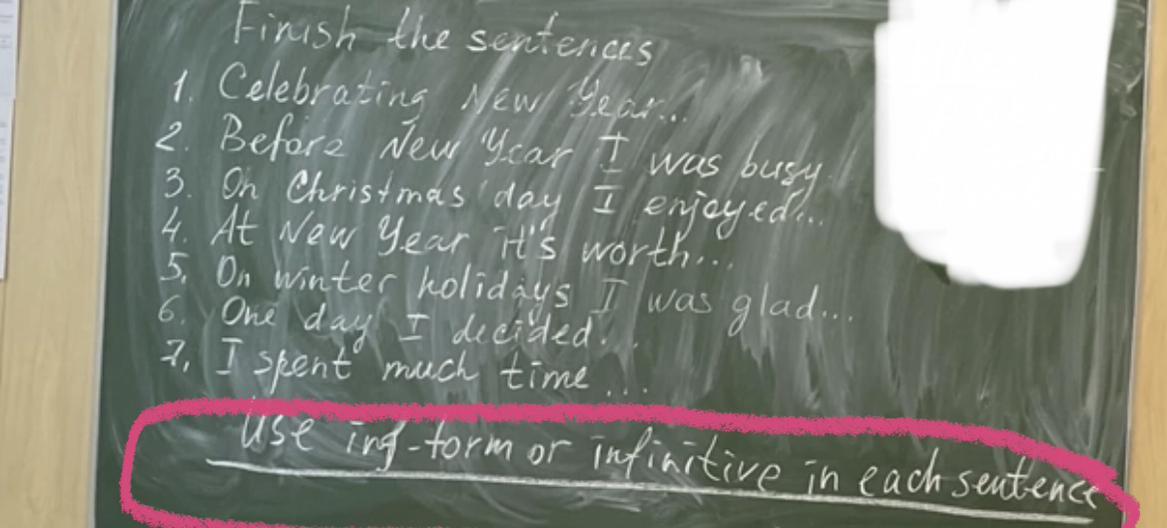 Finish the sentences
1. Celebrating New Year...
2. Before New Year I was busy
3. On Christmas day I enjoyed...
4. At New Year it's worth...
5. On winter holidays I was glad...
6. One day I decided...
7. I spent much time ...
Use ing-form or infinitive in each sentence